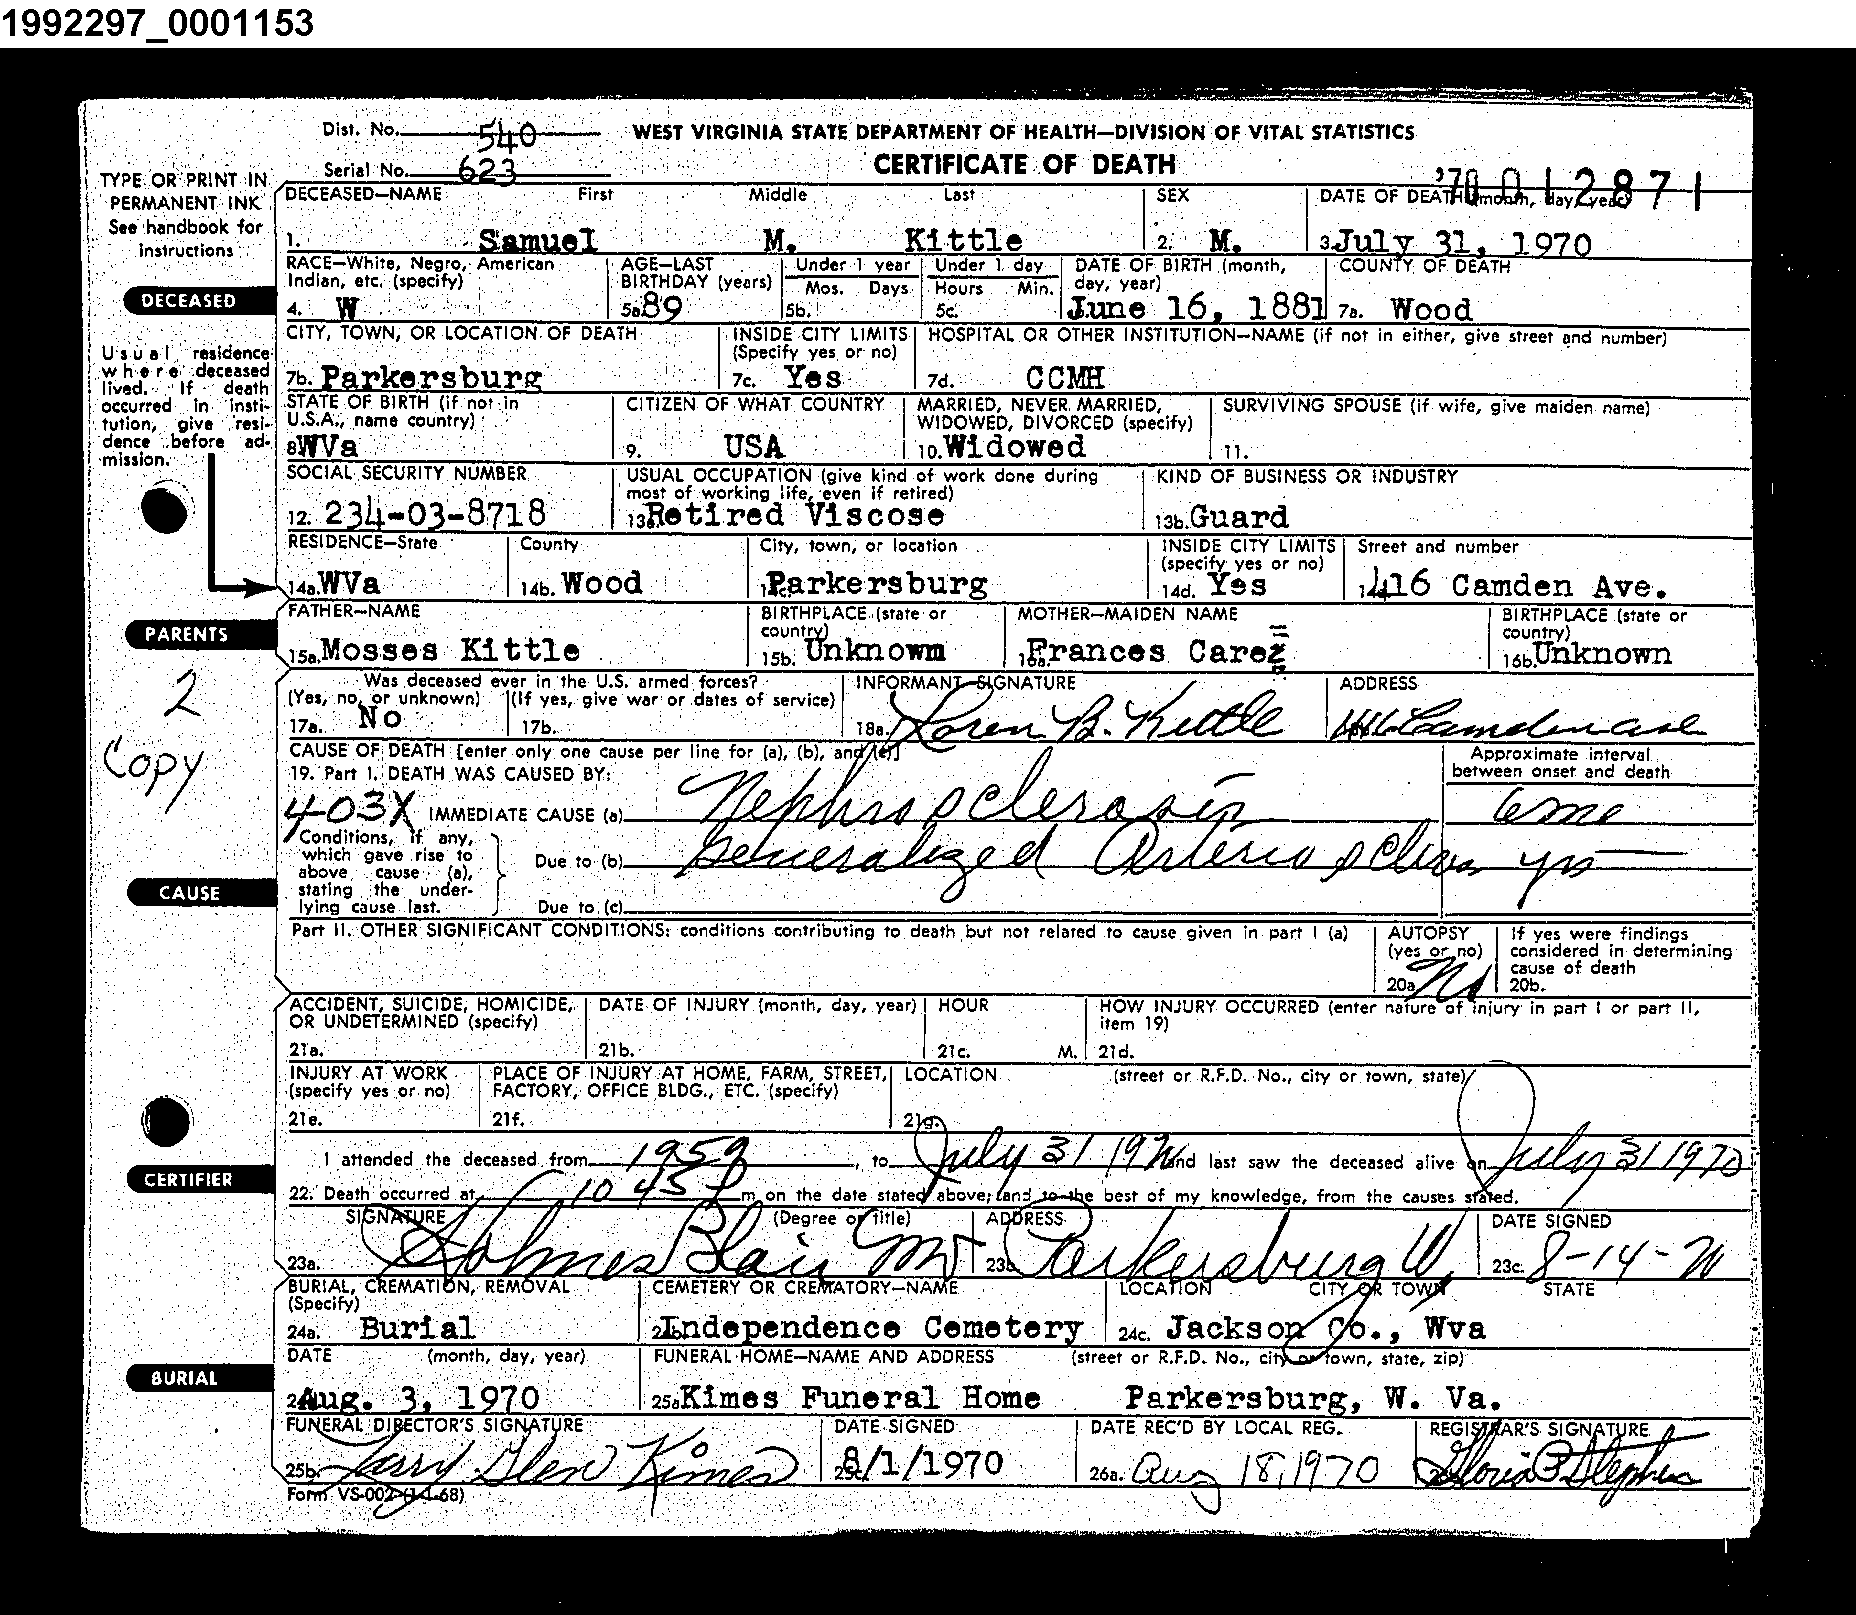 1992297_0001153
Dist. No. 540 WEST VIRGINIA STATE DEPARTMENT OF HEALTH—DIVISION OF VITAL STATISTICS
Serial No. 623 CERTIFICATE OF DEATH
'70 012871
TYPE OR PRINT IN
PERMANENT INK
See handbook for
instructions
DECEASED—NAME First Middle Last SEX DATE OF DEATH (month, day, year)
1. Samuel M. Kittle 2. M. 3. July 31, 1970
RACE—White, Negro, American AGE—LAST Under 1 year Under 1 day DATE OF BIRTH (month, COUNTY OF DEATH
Indian, etc. (specify) BIRTHDAY (years) Mos. Days Hours Min. day, year)
DECEASED
4. W 5a. 89 5b. 5c. 6. June 16, 1881 7a. Wood
CITY, TOWN, OR LOCATION OF DEATH INSIDE CITY LIMITS HOSPITAL OR OTHER INSTITUTION—NAME (if not in either, give street and number)
(Specify yes or no)
7b. Parkersburg 7c. Yes 7d. CCMH
Usual residence
where deceased
lived. If death
occurred in insti-
tution, give resi-
dence before ad-
mission.
STATE OF BIRTH (if not in CITIZEN OF WHAT COUNTRY MARRIED, NEVER MARRIED, SURVIVING SPOUSE (if wife, give maiden name)
U.S.A., name country) WIDOWED, DIVORCED (specify)
8. WVa 9. USA 10. Widowed 11.
SOCIAL SECURITY NUMBER USUAL OCCUPATION (give kind of work done during KIND OF BUSINESS OR INDUSTRY
most of working life, even if retired)
12. 234-03-8718 13a. Retired Viscose 13b. Guard
RESIDENCE—State County City, town, or location INSIDE CITY LIMITS Street and number
(specify yes or no)
14a. WVa 14b. Wood 14c. Parkersburg 14d. Yes 416 Camden Ave.
PARENTS
FATHER—NAME BIRTHPLACE (state or MOTHER—MAIDEN NAME BIRTHPLACE (state or
country) country)
15a. Mosses Kittle 15b. Unknown 16a. Frances Carez 16b. Unknown
2
Copy
Was deceased ever in the U.S. armed forces? INFORMANT—SIGNATURE ADDRESS
(Yes, no, or unknown) (If yes, give war or dates of service)
17a. No 17b. 18a. Loren B. Kittle 416 Camden ave
CAUSE OF DEATH [enter only one cause per line for (a), (b), and (c)] Approximate interval
19. Part I. DEATH WAS CAUSED BY: between onset and death
403X IMMEDIATE CAUSE (a) Nephrosclerosis 6 mo
CAUSE
Conditions, if any,
which gave rise to
above cause (a),
stating the under-
lying cause last.
Due to (b) Generalized Arterio scleros yrs
Due to (c)
Part II. OTHER SIGNIFICANT CONDITIONS: conditions contributing to death but not related to cause given in part I (a) AUTOPSY If yes were findings
(yes or no) considered in determining
cause of death
20a. No 20b.
ACCIDENT, SUICIDE, HOMICIDE, DATE OF INJURY (month, day, year) HOUR HOW INJURY OCCURRED (enter nature of injury in part I or part II,
OR UNDETERMINED (specify) item 19)
21a. 21b. 21c. M. 21d.
INJURY AT WORK PLACE OF INJURY AT HOME, FARM, STREET, LOCATION (street or R.F.D. No., city or town, state)
(specify yes or no) FACTORY, OFFICE BLDG., ETC. (specify)
21e. 21f. 21g.
CERTIFIER
I attended the deceased from 1959, to July 31 1970 and last saw the deceased alive on July 31 1970
22. Death occurred at 10 45 P m on the date stated above; and to the best of my knowledge, from the causes stated.
SIGNATURE (Degree or title) ADDRESS DATE SIGNED
23a. Holmes Blair MD 23b. Parkersburg W. 23c. 8-14-70
BURIAL, CREMATION, REMOVAL CEMETERY OR CREMATORY—NAME LOCATION CITY OR TOWN STATE
(Specify)
24a. Burial 24b. Independence Cemetery 24c. Jackson Co., Wva
BURIAL
DATE (month, day, year) FUNERAL HOME—NAME AND ADDRESS (street or R.F.D. No., city or town, state, zip)
Aug. 3, 1970 25a. Kimes Funeral Home Parkersburg, W. Va.
FUNERAL DIRECTOR'S SIGNATURE DATE SIGNED DATE REC'D BY LOCAL REG. REGISTRAR'S SIGNATURE
25b. Larry Glen Kimes 25c. 8/1/1970 26a. Aug 18, 1970 Gloria P. Stephens
Form VS-002 (1-1-68)